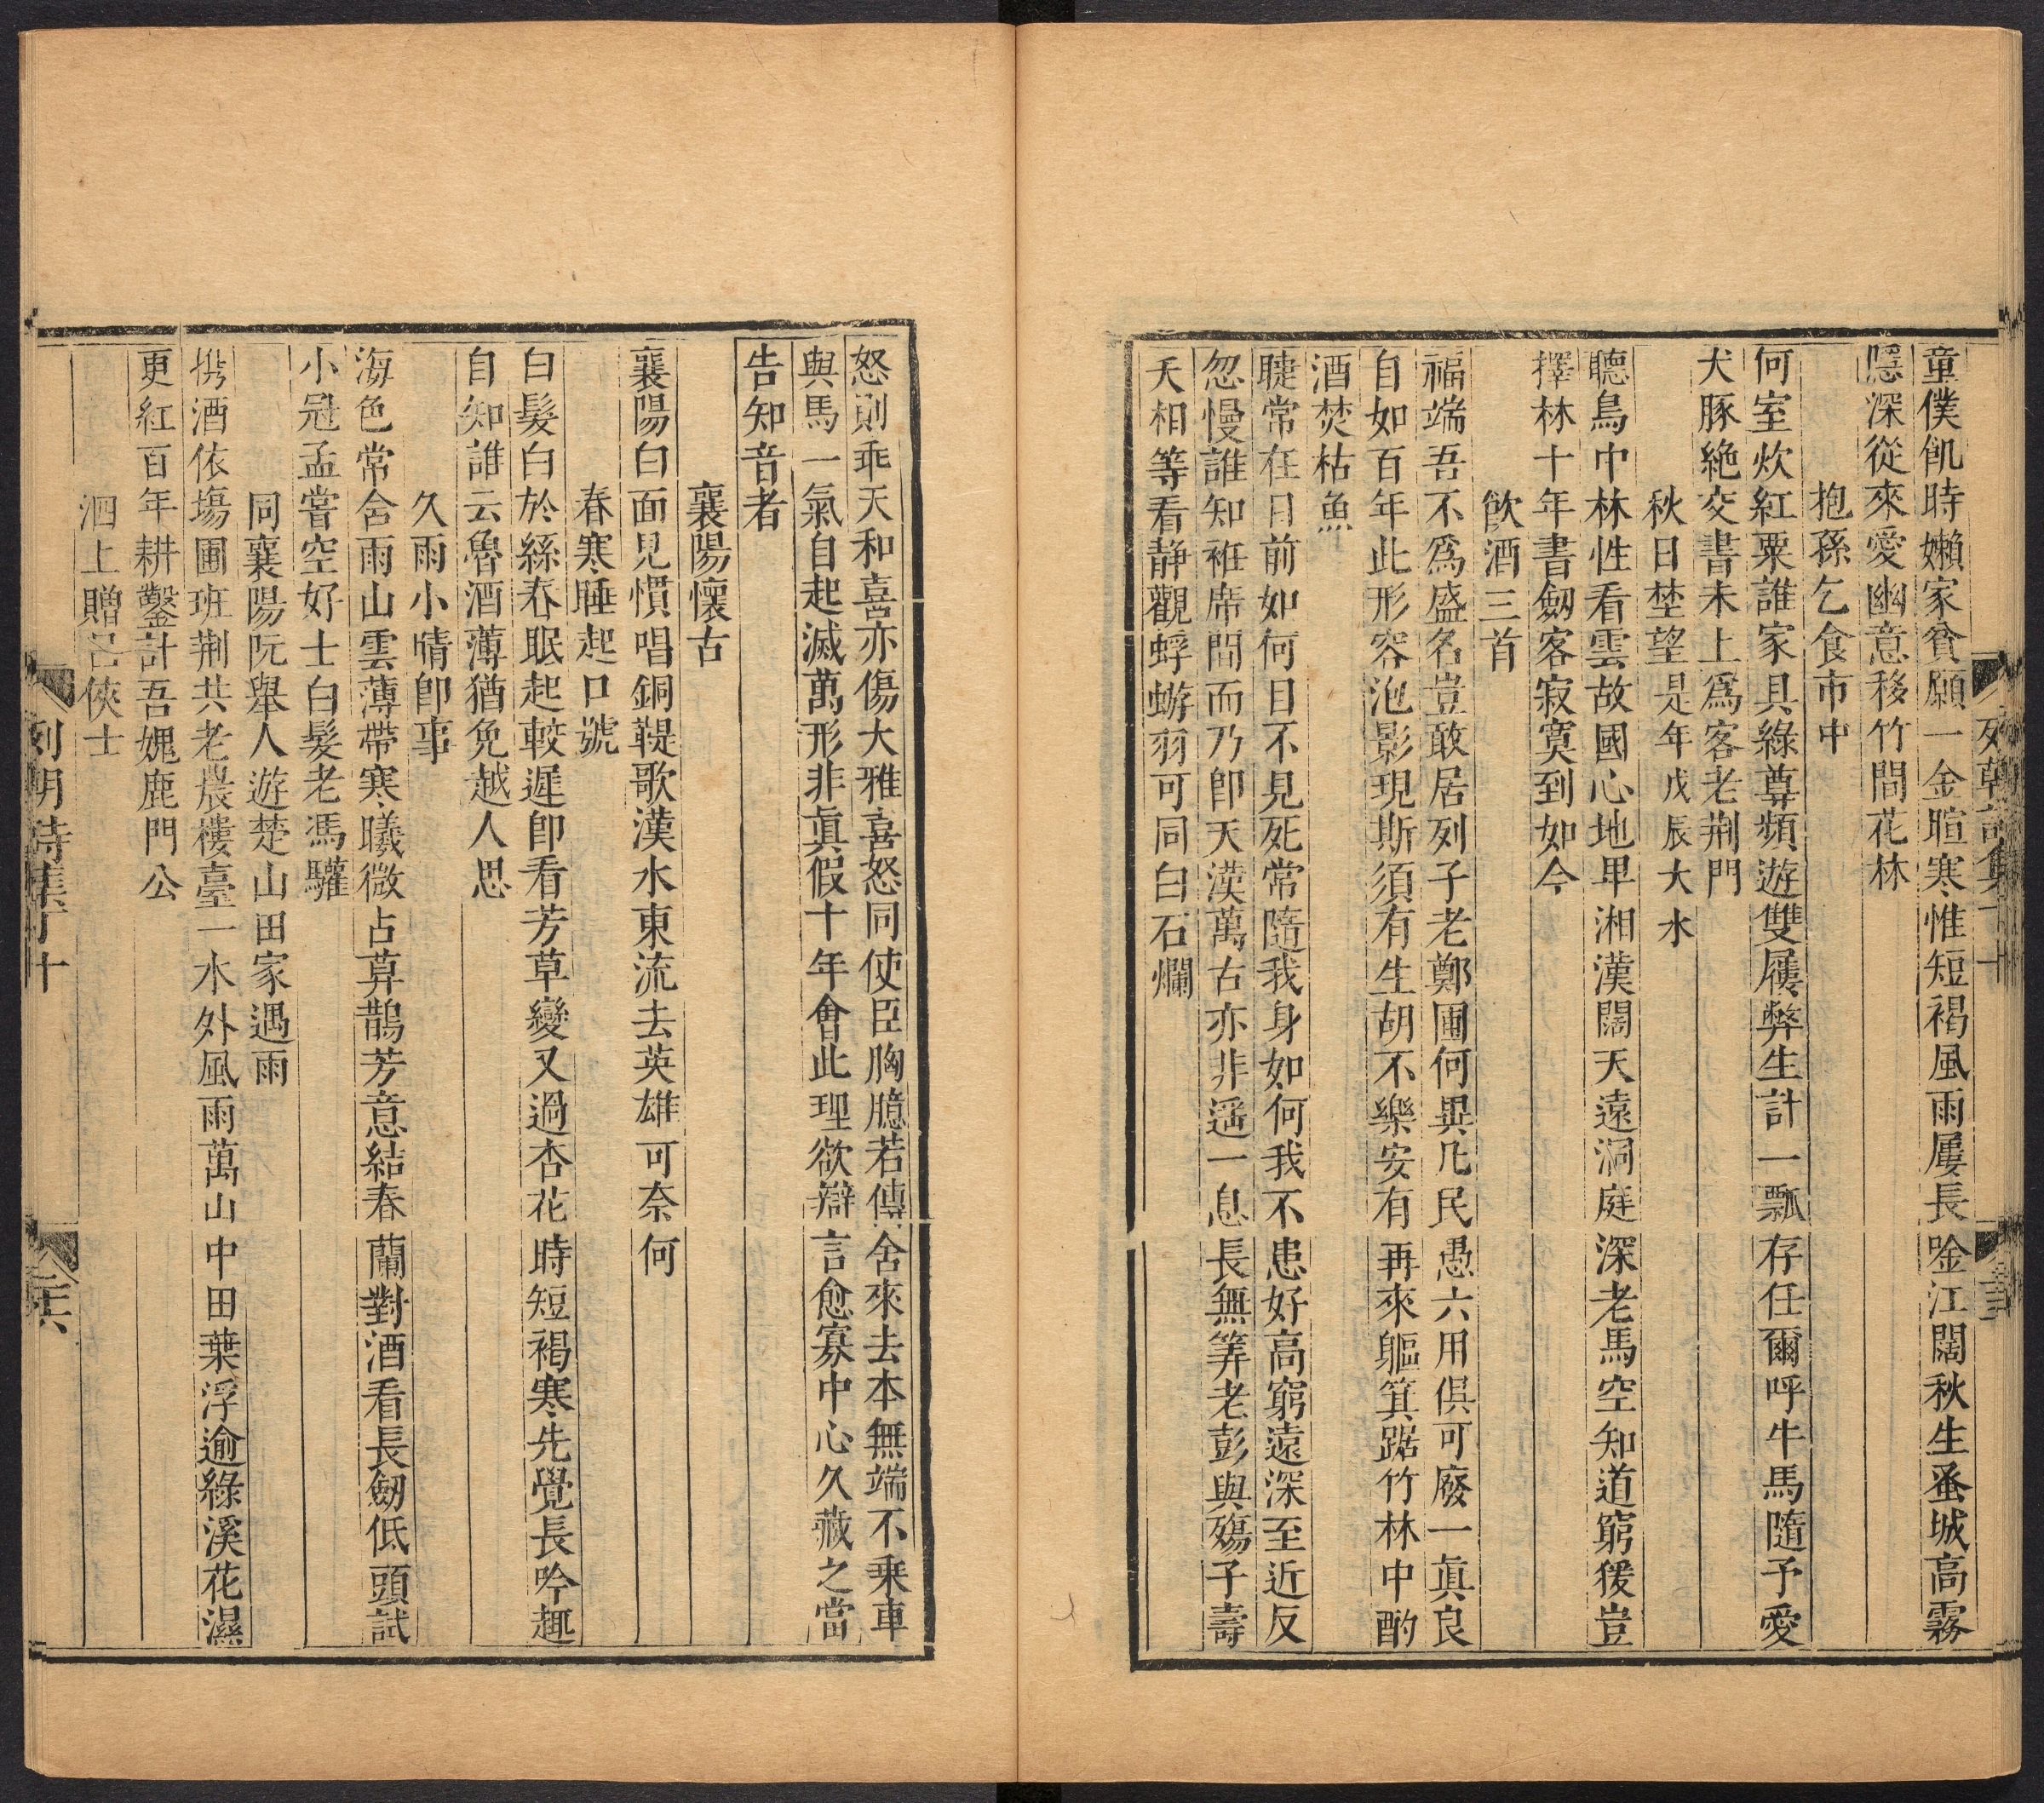 童僕飢時嬾家貧願一金暄寒惟短褐風雨屢長唫江闊秋生蚤城高霧
隱深從來愛幽意移竹間花林
抱孫乞食市中
何室炊紅粟誰家具綠尊頻遊雙屨弊生計一瓢存任爾呼牛馬隨予愛
犬豚絶交書未上爲客老荆門
秋日埜望是年戊辰大水
聽鳥中林性看雲故國心地卑湘漢闊天遠洞庭深老馬空知道窮猨豈
擇林十年書劒客寂寞到如今
飲酒三首
福端吾不爲盛名豈敢居列子老鄭圃何異凡民愚六用俱可廢一眞良
自如百年此形容泡影現斯須有生胡不樂安有再來軀箕踞竹林中酌
酒焚枯魚
睫常在目前如何目不見死常隨我身如何我不患好高窮遠深至近反
忽慢誰知袵席間而乃卽天漢萬古亦非遥一息長無筭老彭與殤子壽
夭相等看静觀蜉蝣羽可同白石爛
怒則乖天和喜亦傷大雅喜怒同使臣胸臆若傳舍來去本無端不乗車
與馬一氣自起滅萬形非眞假十年會此理欲辯言愈寡中心久藏之當
告知音者
襄陽懷古
襄陽白面見慣唱銅鞮歌漢水東流去英雄可奈何
春寒睡起口號
白髮白於絲春眠起較遲卽看芳草變又過杏花時短褐寒先覺長吟趣
自知誰云魯酒薄猶免越人思
久雨小晴卽事
海色常含雨山雲薄帶寒曦微占草鵲芳意結春蘭對酒看長劒低頭試
小冠孟嘗空好士白髮老馮驩
同襄陽阮舉人遊楚山田家遇雨
携酒依塲圃班荆共老農樓臺一水外風雨萬山中田葉浮逾綠溪花濕
更紅百年耕鑿計吾媿鹿門公
泗上贈呂俠士
列朝詩集丁十